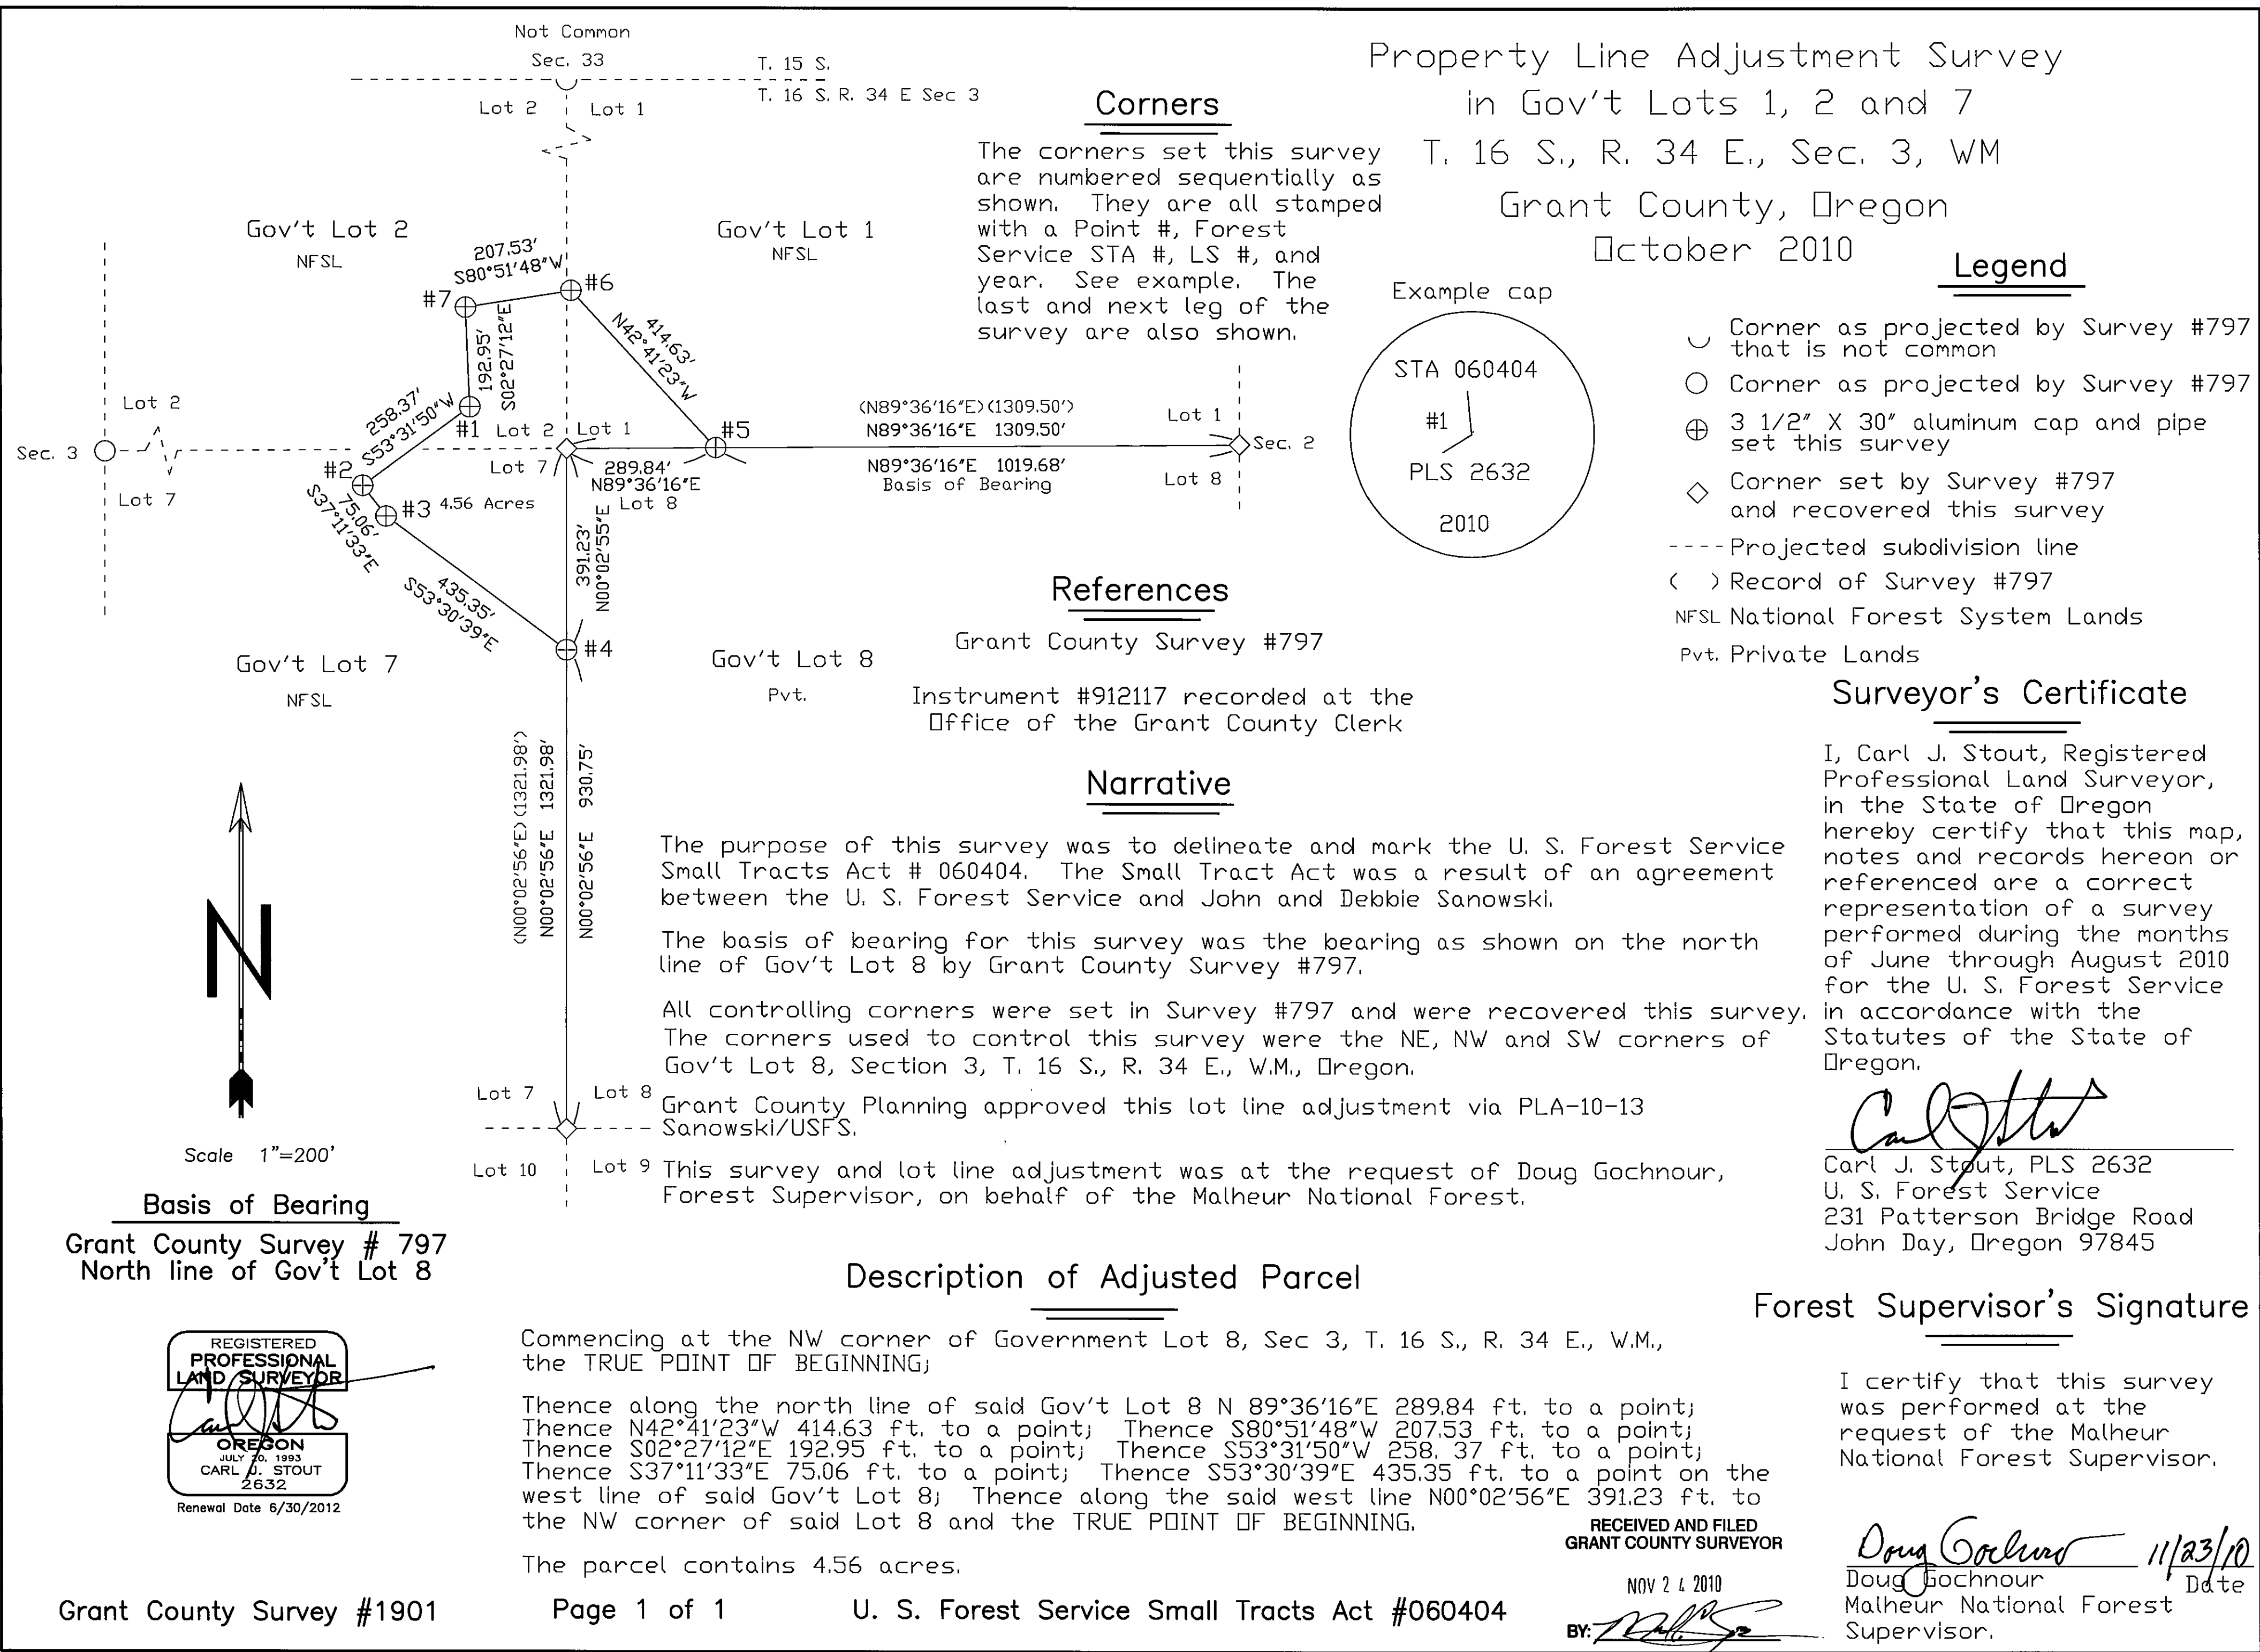 Not Common
Sec. 33
T. 15 S.
T. 16 S. R. 34 E Sec 3
Lot 2
Lot 1
Gov't Lot 2
NFSL
Gov't Lot 1
NFSL
207.53'
S80°51'48"W
#7
#6
192.95'
S02°27'12"E
414.63'
N42°41'23"W
258.37'
S53°31'50"W
#1
Lot 2
Lot 1
#5
Lot 2
Sec. 3
Lot 7
#2
Lot 7
289.84'
N89°36'16"E
Lot 8
(N89°36'16"E)(1309.50')
N89°36'16"E 1309.50'
N89°36'16"E 1019.68'
Basis of Bearing
Lot 1
Sec. 2
Lot 8
75.06'
S37°11'33"E
#3
4.56 Acres
435.35'
S53°30'39"E
391.23'
N00°02'55"E
#4
Gov't Lot 7
NFSL
Gov't Lot 8
Pvt.
(N00°02'56"E)(1321.98')
N00°02'56"E 1321.98'
N00°02'56"E 930.75'
Lot 7
Lot 8
Lot 10
Lot 9
N
Scale 1"=200'
Basis of Bearing
Grant County Survey # 797
North line of Gov't Lot 8
Corners
The corners set this survey
are numbered sequentially as
shown. They are all stamped
with a Point #, Forest
Service STA #, LS #, and
year. See example. The
last and next leg of the
survey are also shown.
Property Line Adjustment Survey
in Gov't Lots 1, 2 and 7
T. 16 S., R. 34 E., Sec. 3, WM
Grant County, Oregon
October 2010
Example cap
STA 060404
#1
PLS 2632
2010
Legend
Corner as projected by Survey #797
that is not common
Corner as projected by Survey #797
3 1/2" X 30" aluminum cap and pipe
set this survey
Corner set by Survey #797
and recovered this survey
---- Projected subdivision line
( ) Record of Survey #797
NFSL National Forest System Lands
Pvt. Private Lands
References
Grant County Survey #797
Instrument #912117 recorded at the
Office of the Grant County Clerk
Narrative
The purpose of this survey was to delineate and mark the U. S. Forest Service
Small Tracts Act # 060404. The Small Tract Act was a result of an agreement
between the U. S. Forest Service and John and Debbie Sanowski.
The basis of bearing for this survey was the bearing as shown on the north
line of Gov't Lot 8 by Grant County Survey #797.
All controlling corners were set in Survey #797 and were recovered this survey.
The corners used to control this survey were the NE, NW and SW corners of
Gov't Lot 8, Section 3, T. 16 S., R. 34 E., W.M., Oregon.
Grant County Planning approved this lot line adjustment via PLA-10-13
Sanowski/USFS.
This survey and lot line adjustment was at the request of Doug Gochnour,
Forest Supervisor, on behalf of the Malheur National Forest.
Surveyor's Certificate
I, Carl J. Stout, Registered
Professional Land Surveyor,
in the State of Oregon
hereby certify that this map,
notes and records hereon or
referenced are a correct
representation of a survey
performed during the months
of June through August 2010
for the U. S. Forest Service
in accordance with the
Statutes of the State of
Oregon.
Carl J. Stout, PLS 2632
U. S. Forest Service
231 Patterson Bridge Road
John Day, Oregon 97845
Description of Adjusted Parcel
Commencing at the NW corner of Government Lot 8, Sec 3, T. 16 S., R. 34 E., W.M.,
the TRUE POINT OF BEGINNING;
Thence along the north line of said Gov't Lot 8 N 89°36'16"E 289.84 ft. to a point;
Thence N42°41'23"W 414.63 ft. to a point; Thence S80°51'48"W 207.53 ft. to a point;
Thence S02°27'12"E 192.95 ft. to a point; Thence S53°31'50"W 258. 37 ft. to a point;
Thence S37°11'33"E 75.06 ft. to a point; Thence S53°30'39"E 435.35 ft. to a point on the
west line of said Gov't Lot 8; Thence along the said west line N00°02'56"E 391.23 ft. to
the NW corner of said Lot 8 and the TRUE POINT OF BEGINNING.
The parcel contains 4.56 acres.
Forest Supervisor's Signature
I certify that this survey
was performed at the
request of the Malheur
National Forest Supervisor.
Doug Gochnour 11/23/10
Doug Gochnour Date
Malheur National Forest
Supervisor.
REGISTERED
PROFESSIONAL
LAND SURVEYOR
OREGON
JULY 20, 1993
CARL J. STOUT
2632
Renewal Date 6/30/2012
RECEIVED AND FILED
GRANT COUNTY SURVEYOR
NOV 24 2010
BY:
Grant County Survey #1901
Page 1 of 1
U. S. Forest Service Small Tracts Act #060404